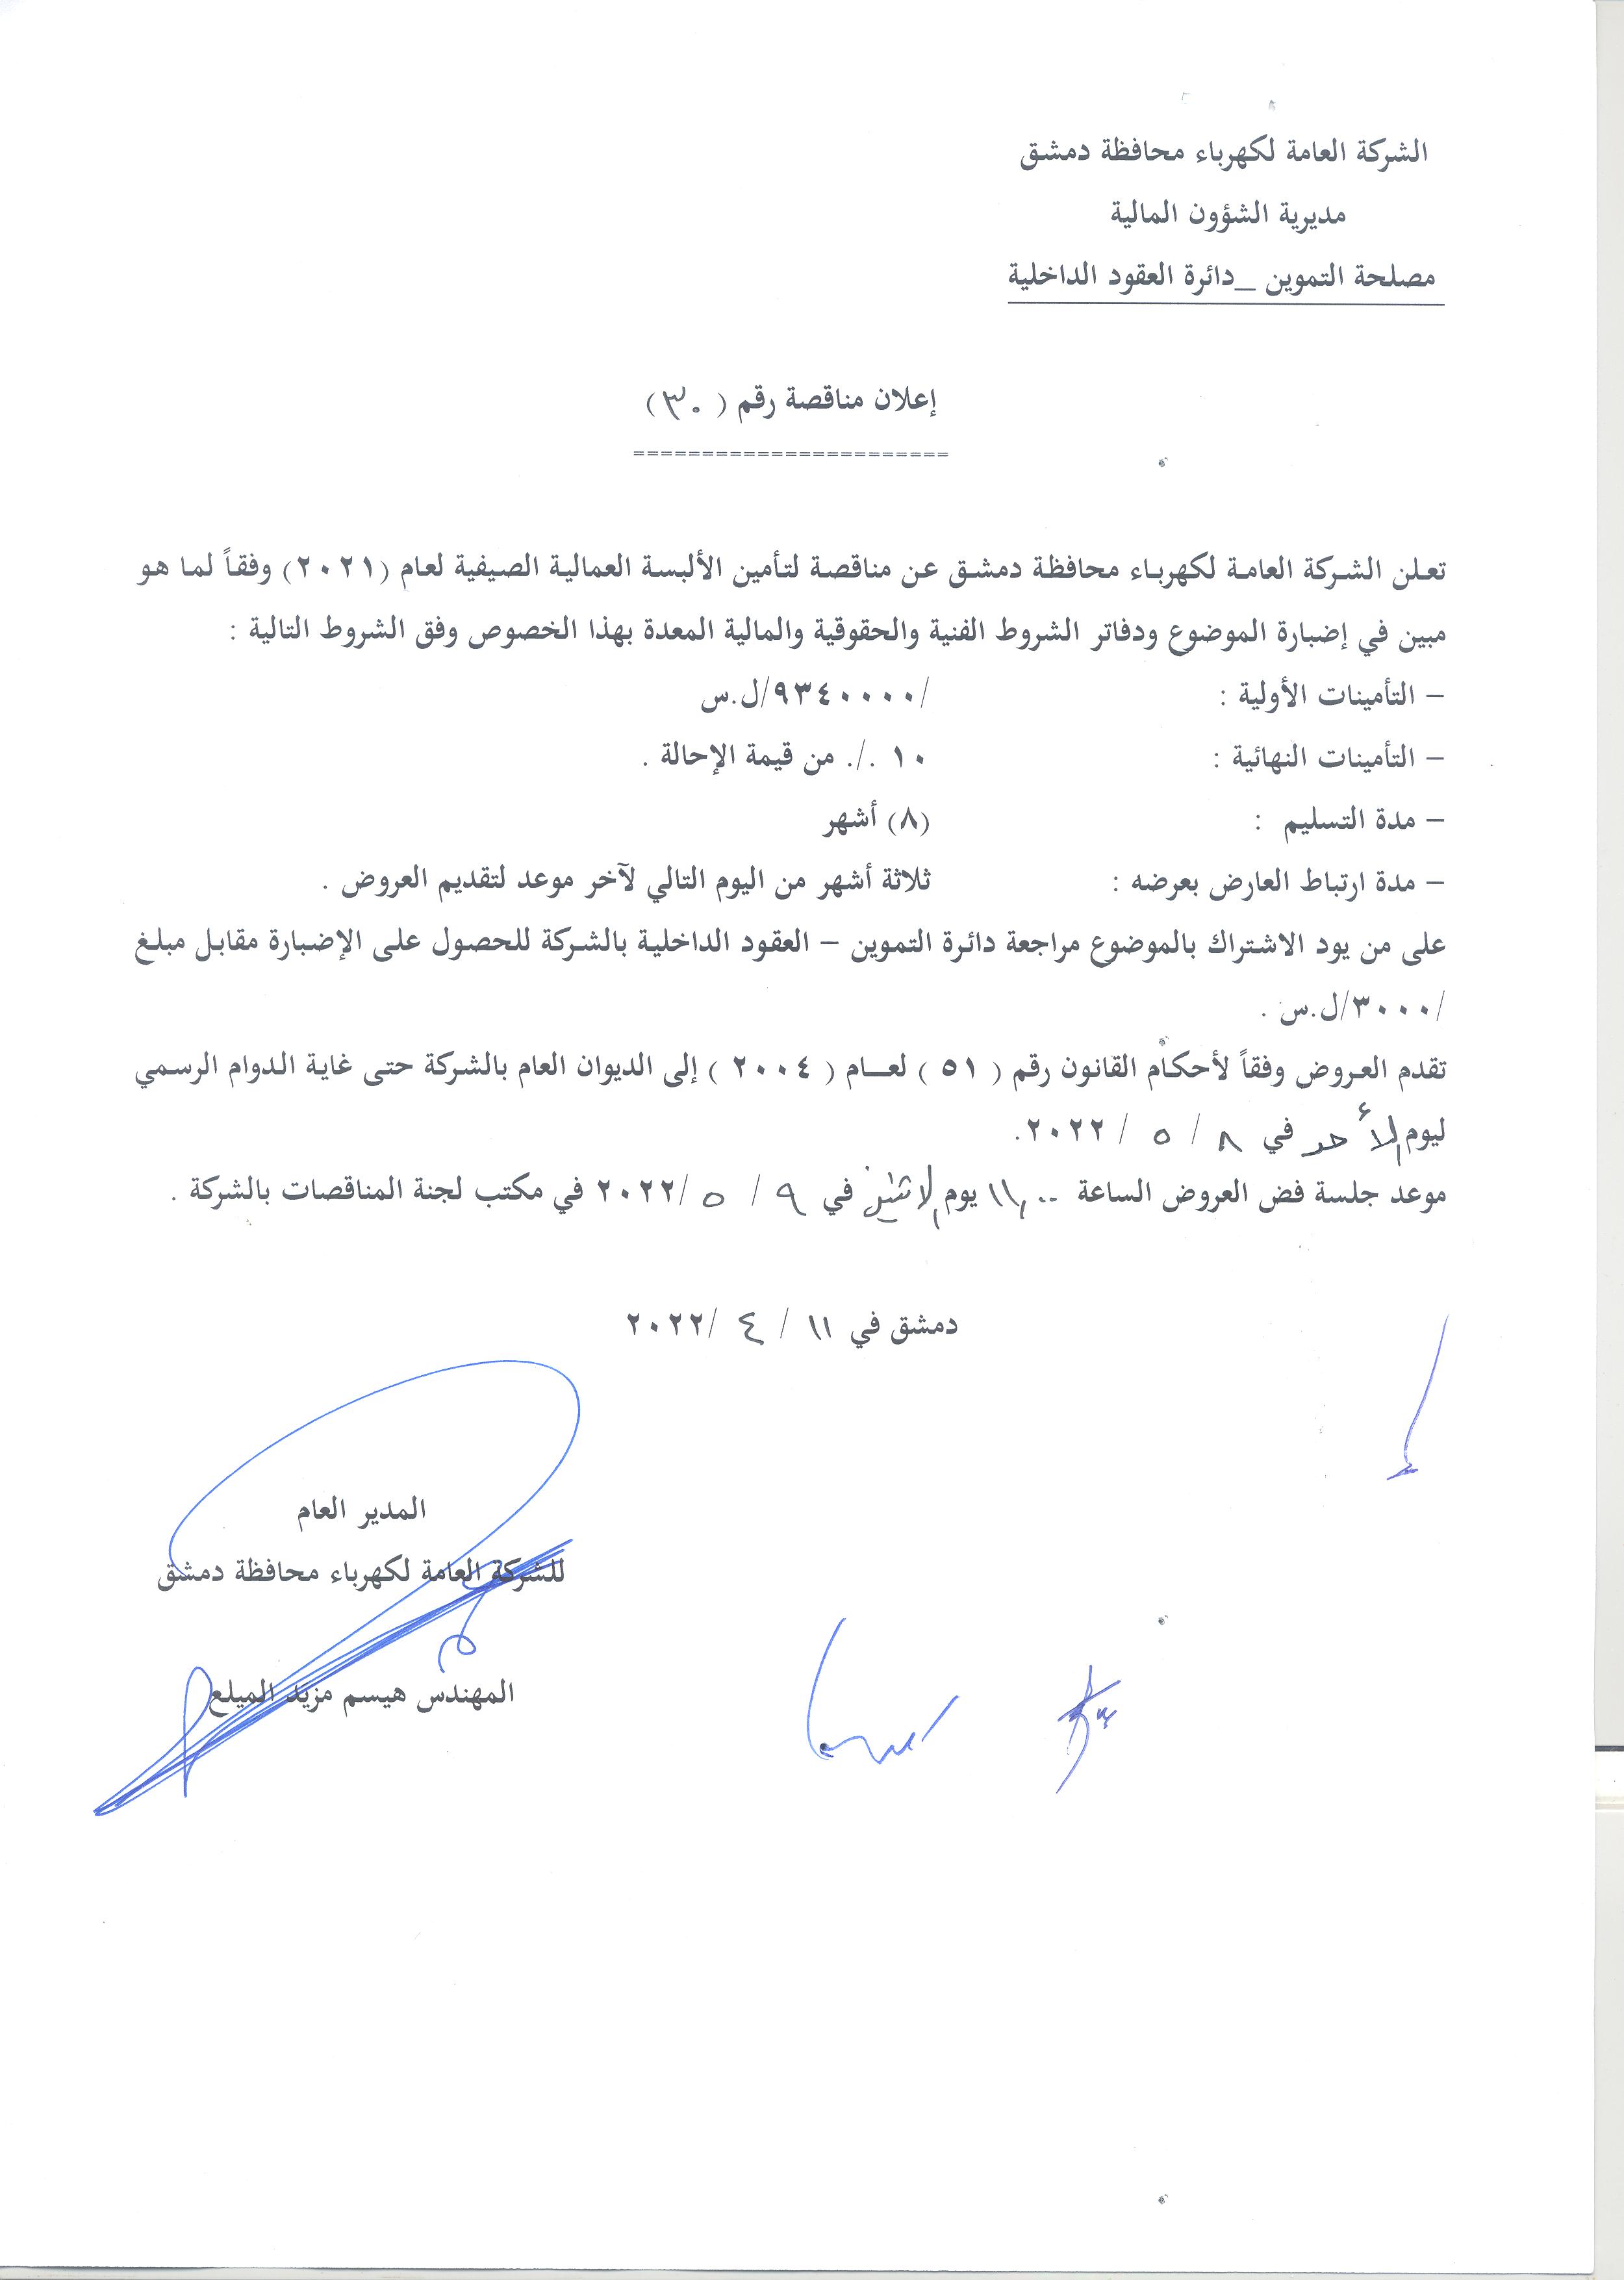 الشركة العامة لكهرباء محافظة دمشق
مديرية الشؤون المالية
مصلحة التموين _دائرة العقود الداخلية
إعلان مناقصة رقم ( ٣٠ )
=======================
تعلن الشركة العامة لكهرباء محافظة دمشق عن مناقصة لتأمين الألبسة العمالية الصيفية لعام (٢٠٢١) وفقاً لما هو
مبين في إضبارة الموضوع ودفاتر الشروط الفنية والحقوقية والمالية المعدة بهذا الخصوص وفق الشروط التالية :
– التأمينات الأولية : /٩٣٤٠٠٠٠/ل.س
– التأمينات النهائية : ١٠ ./. من قيمة الإحالة .
– مدة التسليم : (٨) أشهر
– مدة ارتباط العارض بعرضه : ثلاثة أشهر من اليوم التالي لآخر موعد لتقديم العروض .
على من يود الاشتراك بالموضوع مراجعة دائرة التموين – العقود الداخلية بالشركة للحصول على الإضبارة مقابل مبلغ
/٣٠٠٠/ل.س .
تقدم العروض وفقاً لأحكام القانون رقم ( ٥١ ) لعــام ( ٢٠٠٤ ) إلى الديوان العام بالشركة حتى غاية الدوام الرسمي
ليوم الأحد في ٨ / ٥ / ٢٠٢٢.
موعد جلسة فض العروض الساعة ١١,٠٠ يوم الاثنين في ٩ / ٥ /٢٠٢٢ في مكتب لجنة المناقصات بالشركة .
دمشق في ١١ / ٤ /٢٠٢٢
المدير العام
للشركة العامة لكهرباء محافظة دمشق
المهندس هيسم مزيد الميلع